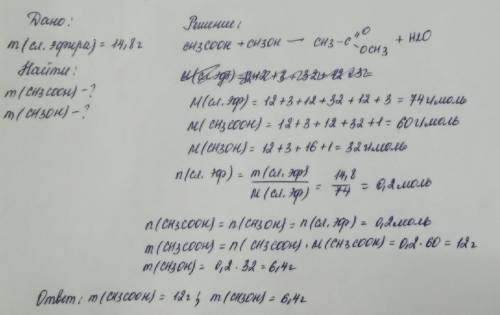 Дано:
m(сл. эфира) = 14,8г
Найти:
m(CH3COOH) - ?
m(CH3OH) - ?
Решение:
CH3COOH + CH3OH — CH3-C=O OCH3 + H2O
M(сл. эф) = 12+3+12+32+12+3 = 74г/моль
M(CH3COOH) = 12+3+12+32+1 = 60г/моль
M(CH3OH) = 12+3+16+1 = 32г/моль
n(сл. эф) = m(сл. эф) / M(сл. эф) = 14,8 / 74 = 0,2 моль
n(CH3COOH) = n(CH3OH) = n(сл. эф) = 0,2 моль
m(CH3COOH) = n(CH3COOH) · M(CH3COOH) = 0,2 · 60 = 12г
m(CH3OH) = 0,2 · 32 = 6,4г
Ответ: m(CH3COOH) = 12г; m(CH3OH) = 6,4г